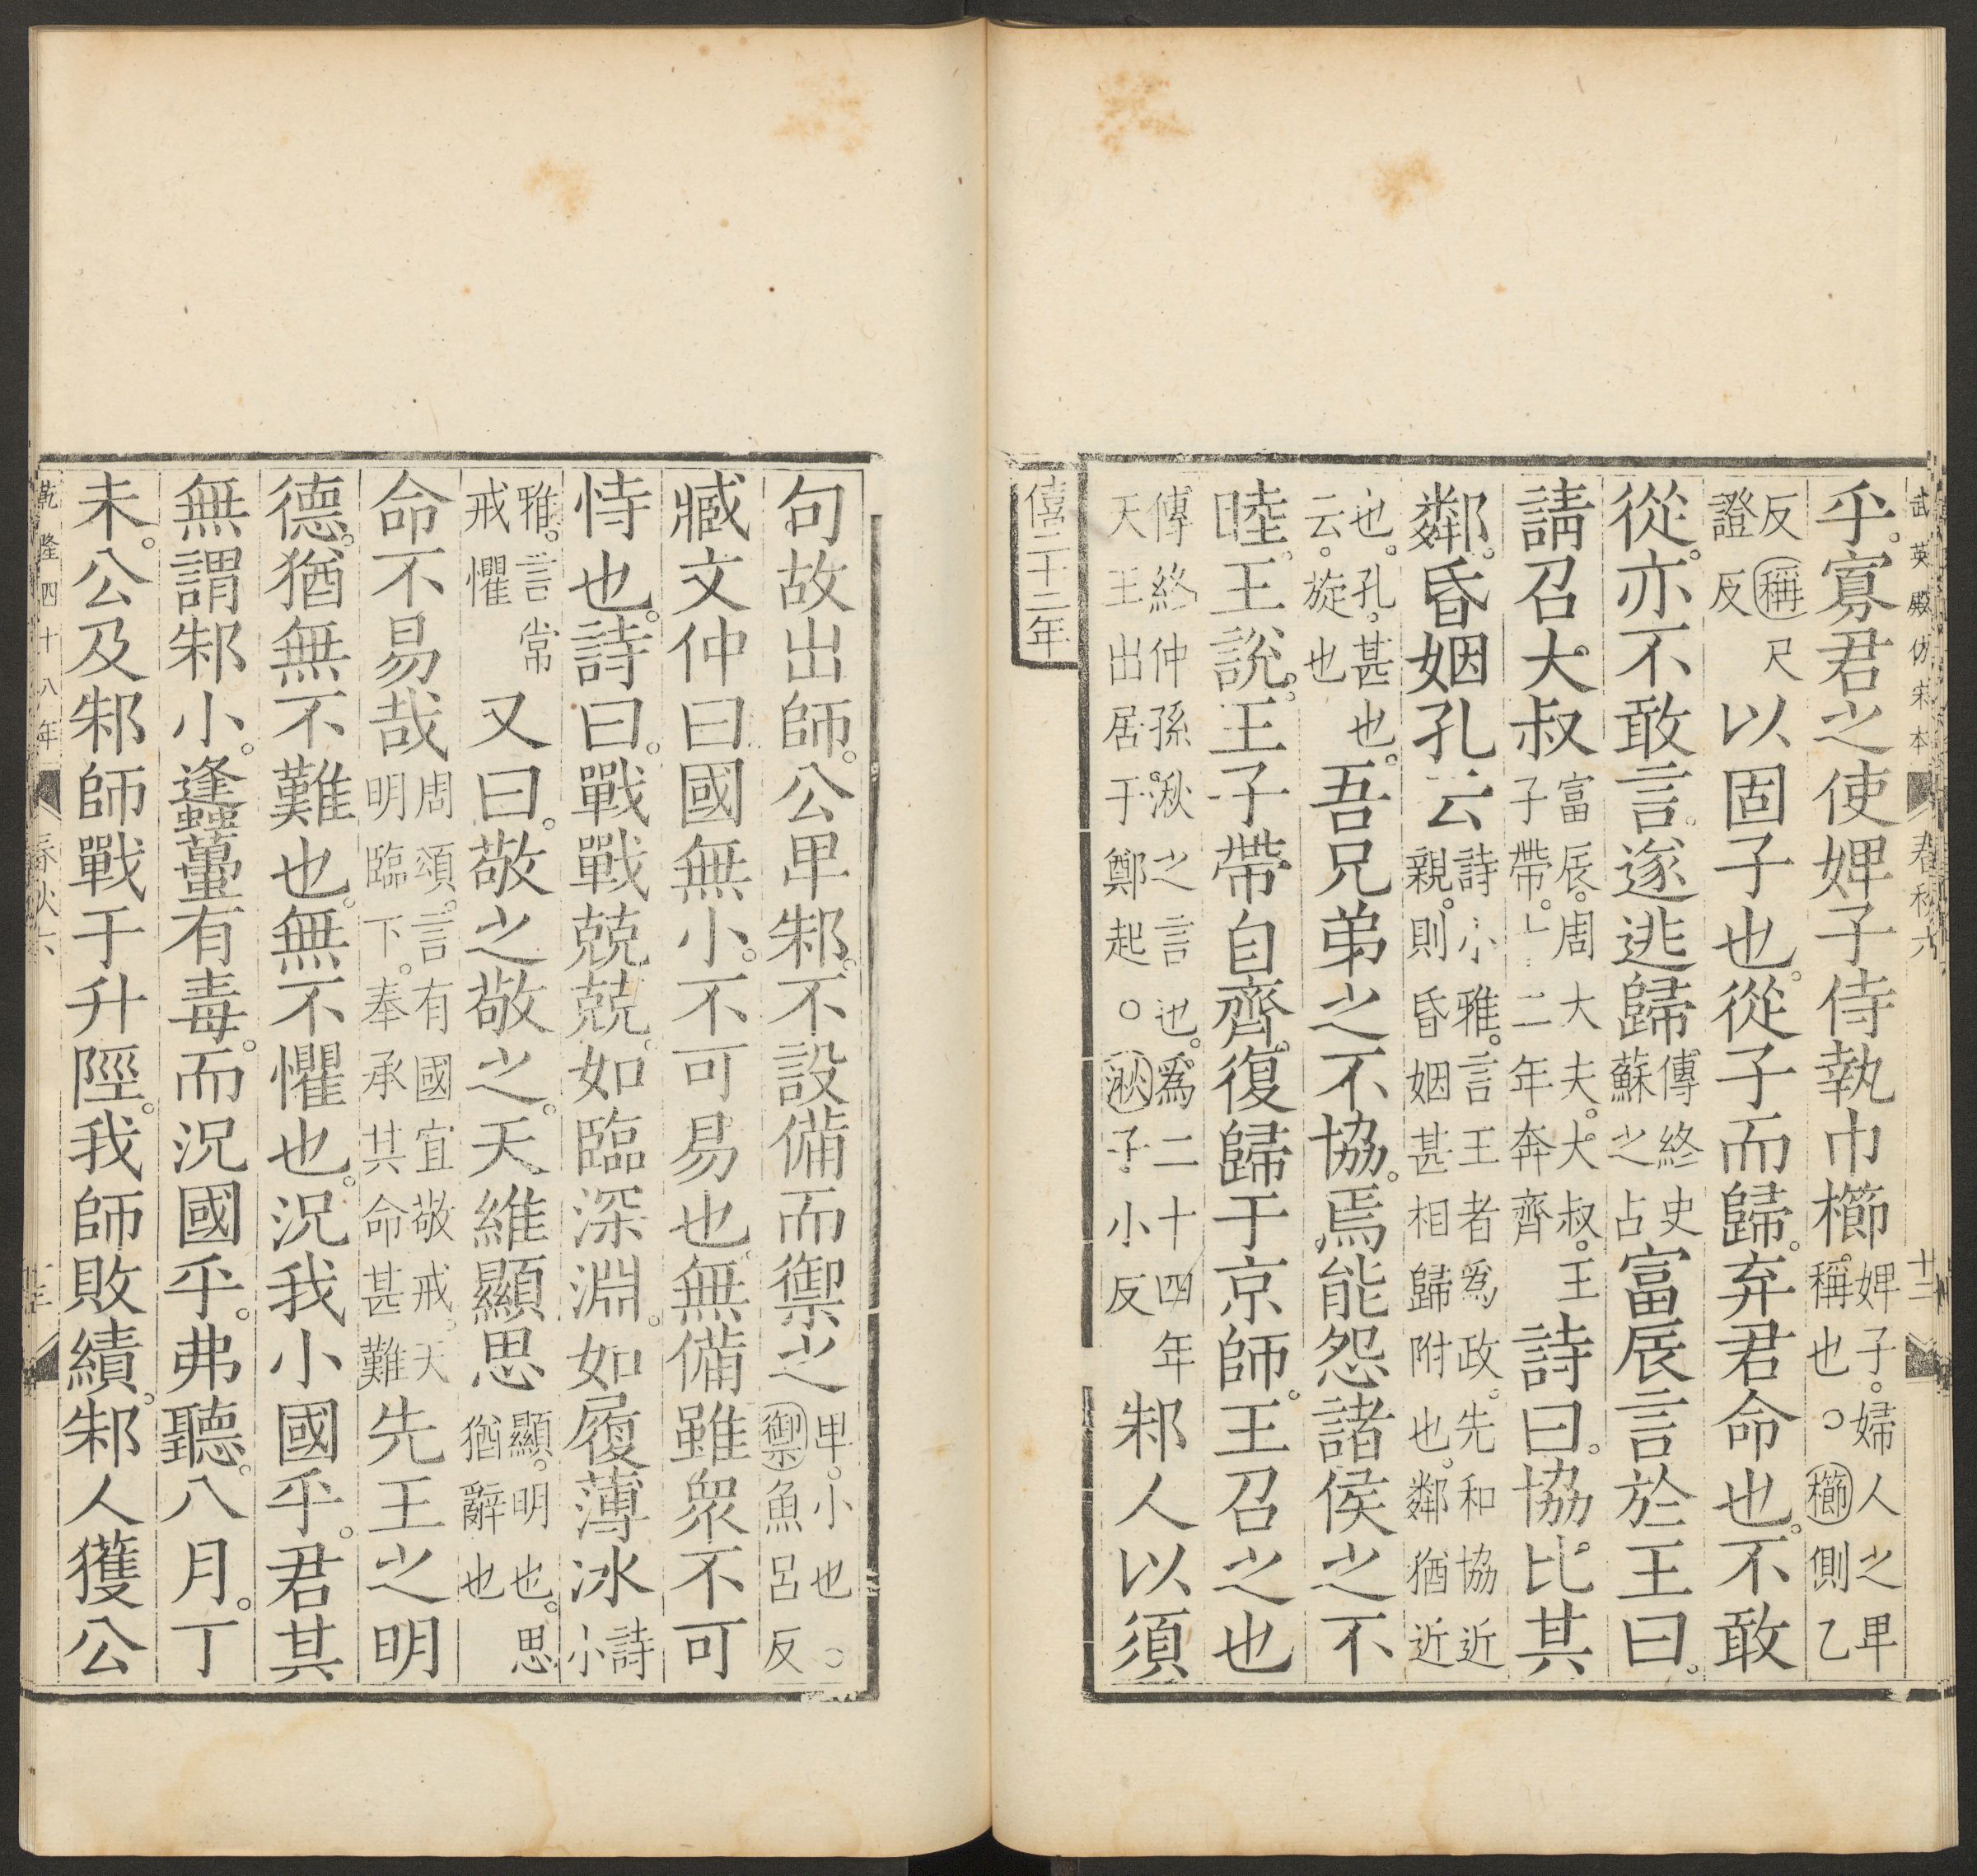 武英殿仿宋本 春秋六 廿二
乎。寡君之使婢子侍執巾櫛。婢子。婦人之卑稱也。○櫛側乙
反稱尺證反以固子也。從子而歸。弃君命也。不敢
從。亦不敢言。遂逃歸。傳終史蘇之占富辰言於王曰。
請召大叔富辰。周大夫。大叔。王子帶。十二年奔齊詩曰。協比其
鄰。昏姻孔云詩小雅。言王者爲政。先和協近親。則昏姻甚相歸附也。鄰猶近
也。孔。甚也。云。旋也吾兄弟之不協。焉能怨諸侯之不
睦。王說。王子帶自齊。復歸于京師。王召之也
傳終仲孫湫之言也。爲二十四年天王出居于鄭起。○湫子小反邾人以須
僖二十二年
句故出師。公卑邾。不設備而禦之卑。小也○禦魚呂反
臧文仲曰。國無小。不可易也。無備雖眾不可
恃也。詩曰。戰戰兢兢。如臨深淵。如履薄冰詩小
雅。言常戒懼又曰。敬之敬之。天維顯思顯。明也。思猶辭也
命不易哉周頌。言有國宜敬戒。天明臨下。奉承其命甚難先王之明
德。猶無不難也。無不懼也。況我小國乎。君其
無謂邾小。蠭蠆有毒。而況國乎。弗聽。八月。丁
未。公及邾師戰于升陘。我師敗績。邾人獲公
乾隆四十八年 春秋六